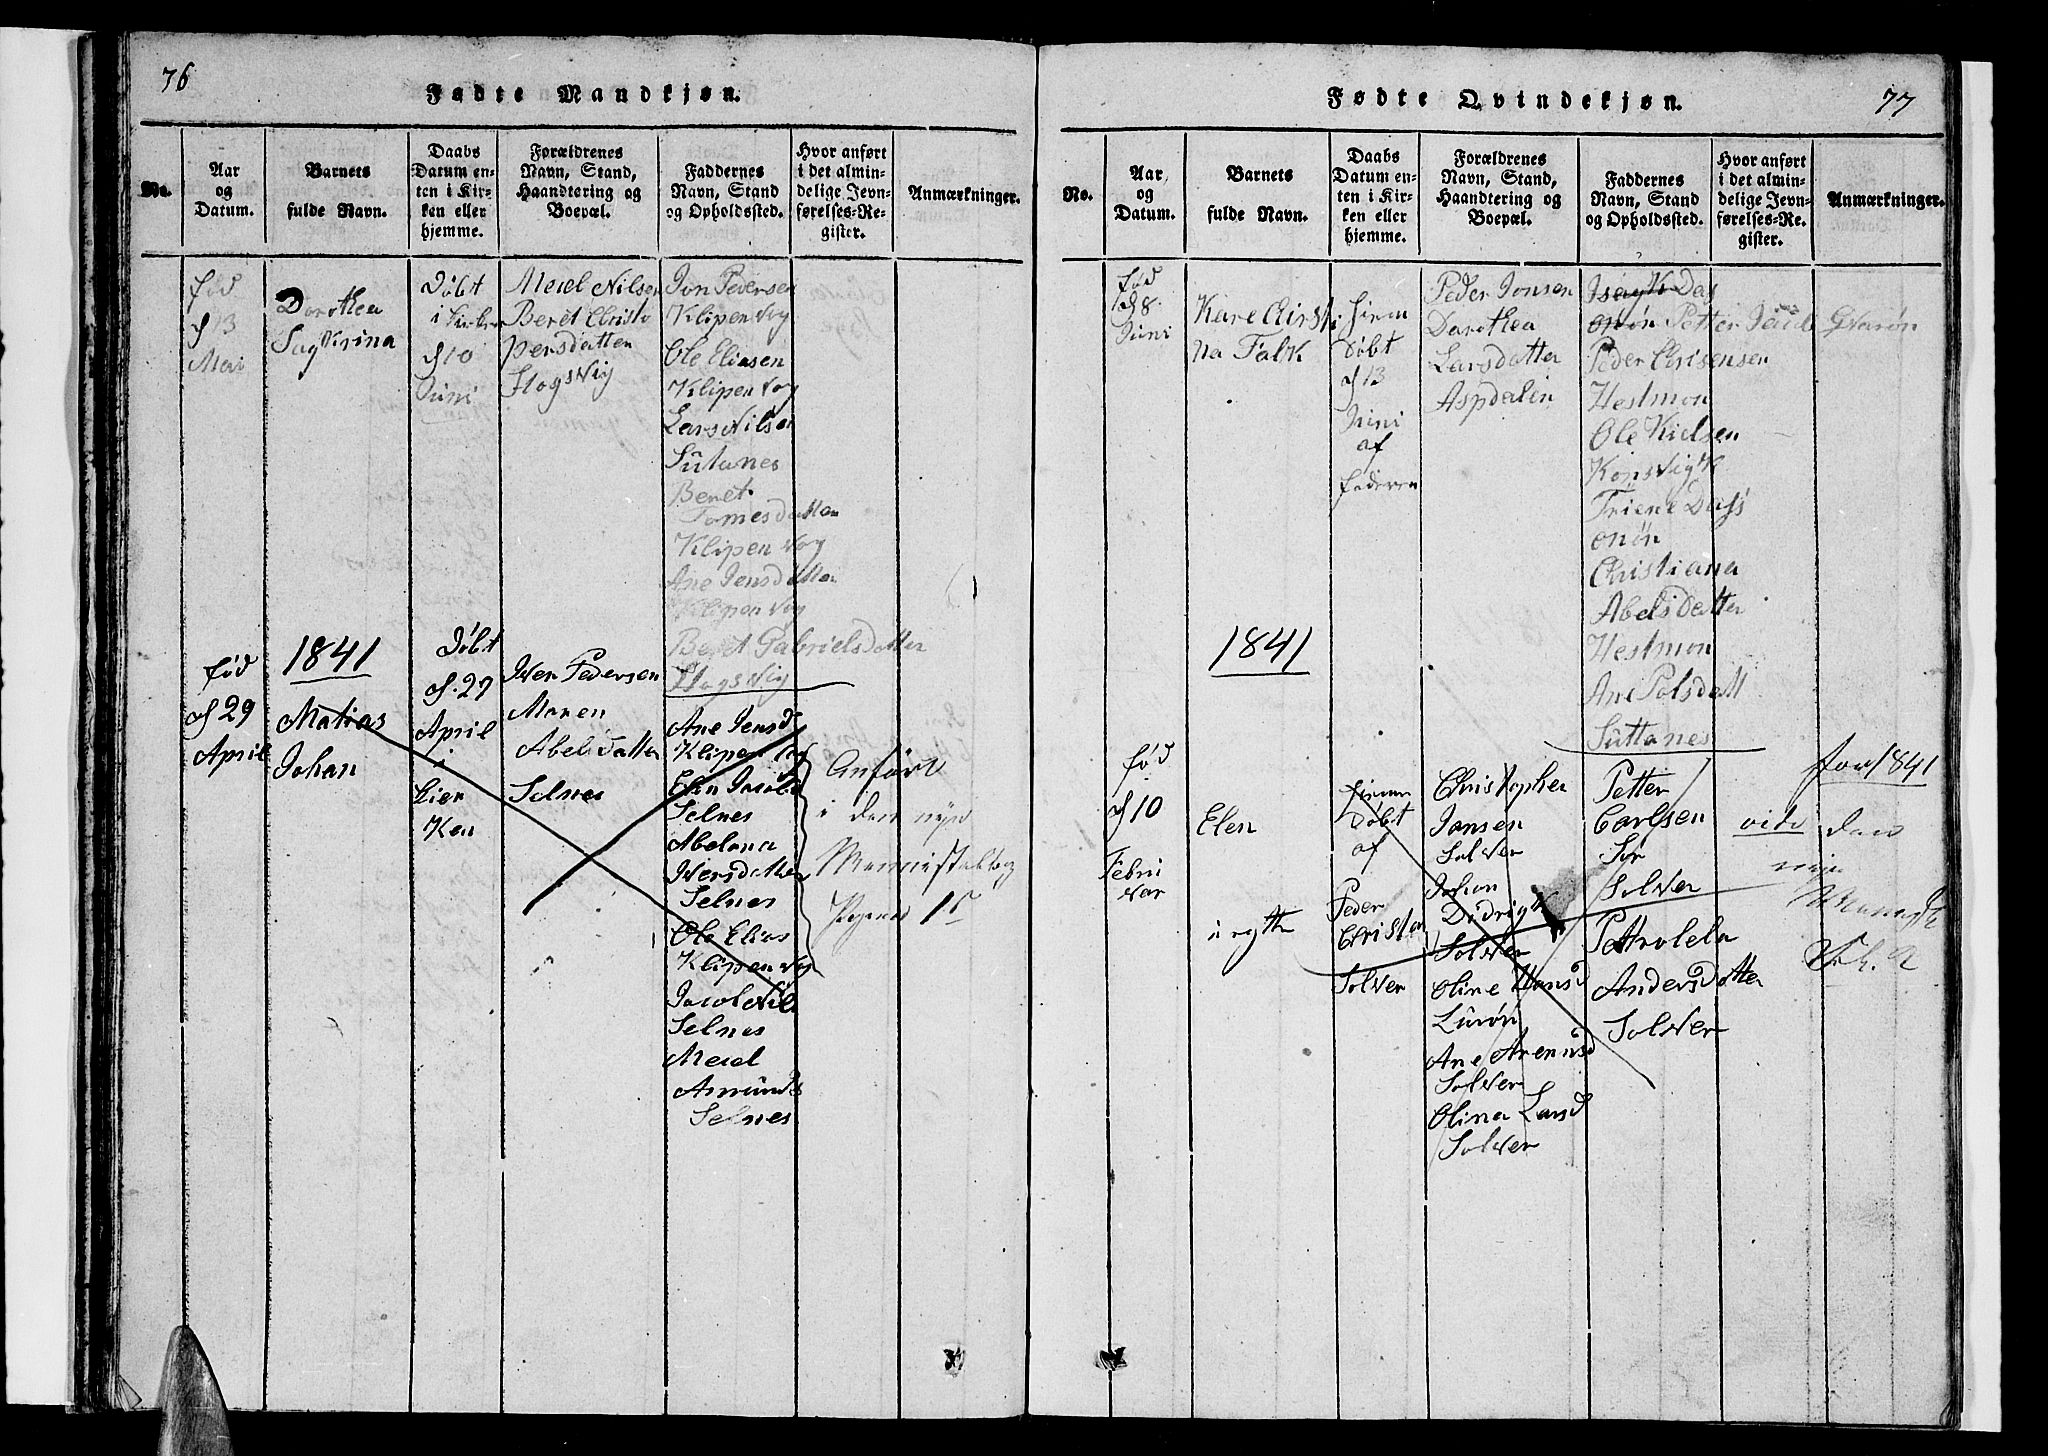 76
Fødte Mandkjøn.
No.
Aar
og
Datum.
Barnets
fulde Navn.
Daabs
Datum en-
ten i Kir-
ken eller
hjemme.
Forældrenes
Navn, Stand,
Haandtering og
Boepæl.
Faddernes
Navn, Stand
og Opholdssted.
Hvor anført
i det almin-
delige Jevn-
førelses-Re-
gister.
Anmærkninger.
fød
d 13
Mai
Dorothea
Døbt
i
d 10
Juni
Meiel Nilsen
Beret Christo
persdatter
Hogsvig
Jon Pedersen
Klipen Vog
Ole Eliasen
Klipen Vog
Lars Nilsen
Sütanes
Beret
Tomesdatter
Klipen Vog
Ane Jensdatter
Klipen Vog
Beret Gabrielsdatter
Hogsvig
1841
fød
d 29
April
Matias
Johan
Døbt
d. 29
April
i
Kier
Ken
Iver Pedersen
Maren
Abelsdatter
Selnes
Ane Jensd
Klipen Vog
Elen
Selnes
Abelona
Iversdatter
Selnes
Ole Elias
Klipen Vog
Jacob Nils
Selnes
Meiel
Asmunds
Selnes
Anført
i den nye
Ministalbog
Pagina 15
77
Fødte Qvindekjøn.
No.
Aar
og
Datum.
Barnets
fulde Navn.
Daabs
Datum en-
ten i Kir-
ken eller
hjemme.
Forældrenes
Navn, Stand,
Haandtering og
Boepæl.
Faddernes
Navn, Stand
og Opholdssted.
Hvor anført
i det almin-
delige Jevn-
førelses-Re-
gister.
Anmærkninger.
fød
d 8
Juni
Kare Chirsti
na Falk
hiem
Døbt
d 13
Juni
af
faderen
Peder Jonsen
Dorothea
Larsdatter
Aspdalen
Isagk Das
onøn Petter
Peder Chrisensen
Hestmon
Ole Kielsen
Konsvigk
Triene Dass
onøn
Christiana
Abelsdatter
Hestmon
Ane Polsdatt
Süttanes
1841
fød
d 10
Febru
var
Elen
i egte
hiem
Døbt
af
Peder
Christen
Solver
Christopher
Jansen
Solver
Johan
Didrigk
Solver
Oline Hansd
Lurøn
Ane Arensd
Solver
Olina Larsd
Solver
Petter
Carlsen
Sør
Solver
Petrolela
Andersdatter
Solver
for 1841
vide den
nye